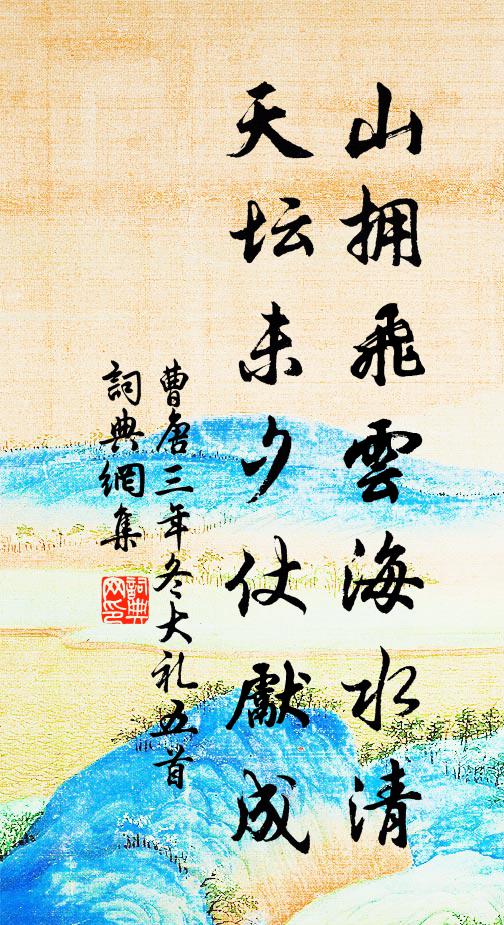 山拥飛雲海水清
天坛未夕仗獻成
曹唐三年冬大礼五首
詞典網集
詞典